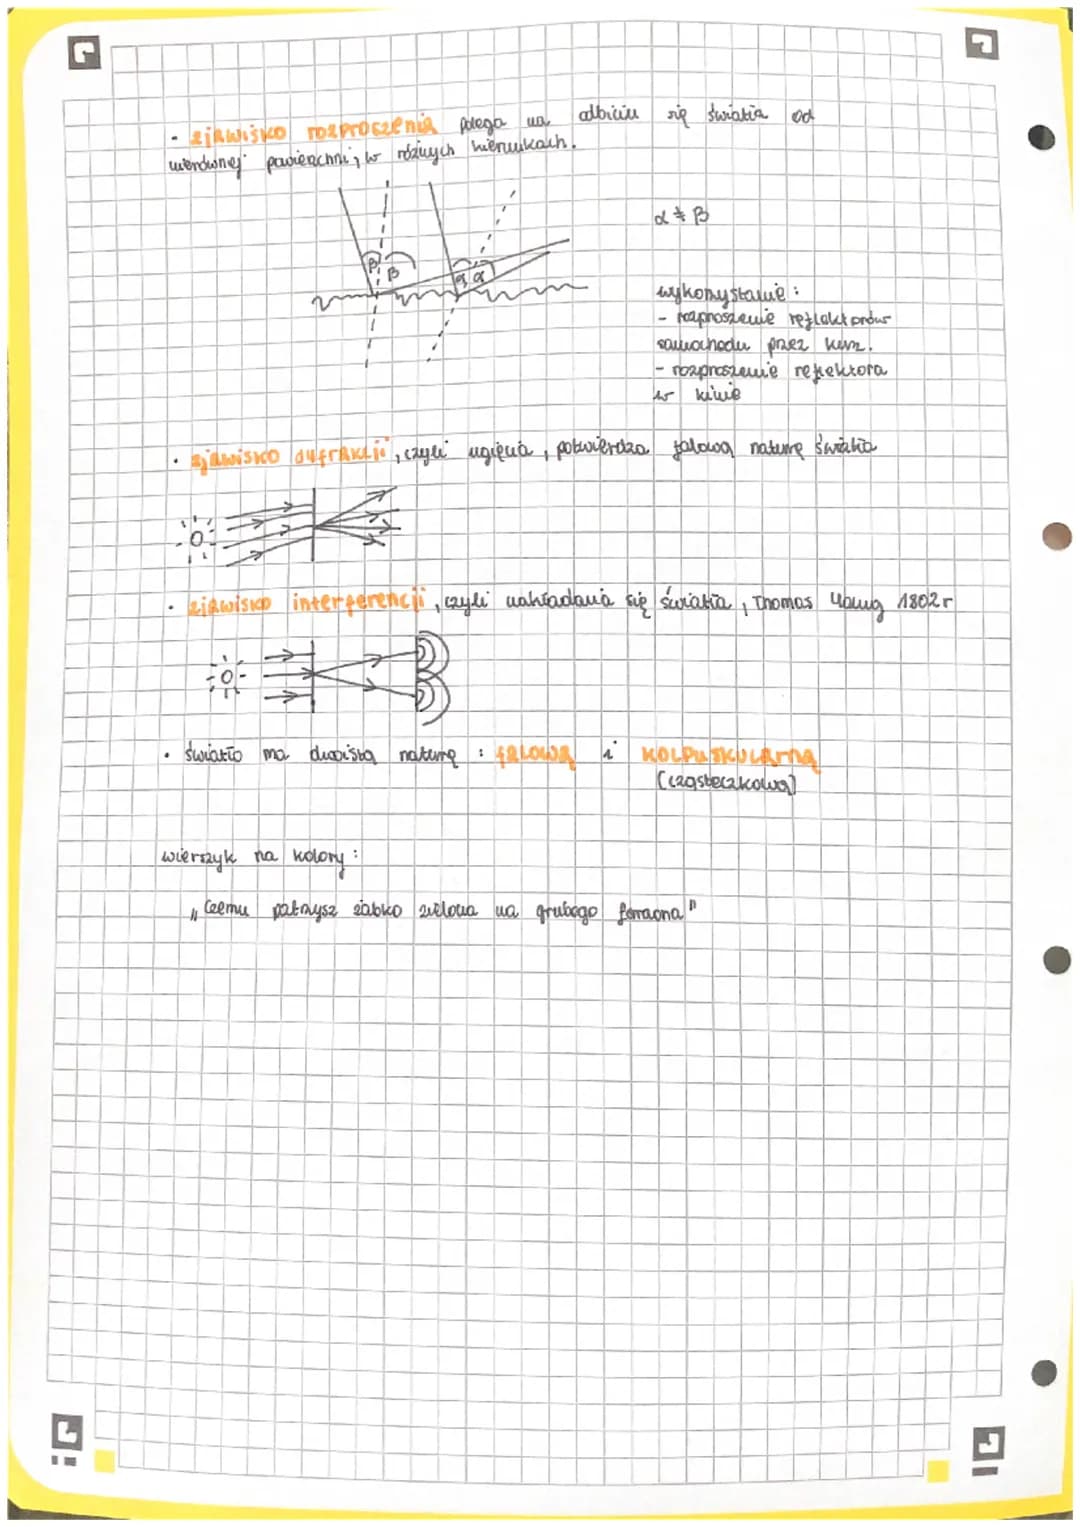 · zjawisko rozproszenia polega na odbiciu się światła od
nierównej powierzchni, w różnych kierunkach.
β β
α α
α ≠ β
wykorzystanie:
- rozproszenie reflektorów
samochodu przez kurz.
- rozproszenie reflektora
w kinie
· zjawisko dyfrakcji, czyli ugięcia, potwierdza falową naturę światła
· zjawisko interferencji, czyli nakładania się światła, Thomas Young 1802r
· światło ma dwoistą naturę: falową i KOLPUSKULARNĄ
(cząsteczkową)
wierszyk na kolory:
„Czemu patrzysz żabko zielona na grubego faraona"